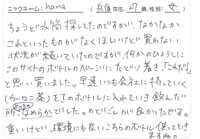 ニックネーム:hana (京都府在住、27歳、女性)
ちょうど水筒探してたのですが、なかなか
これといったものがなくほしいけど買わない
状態が続いていたのですが、何かのひょうしに
このサイトのボトルのページにたどり着き「これだ!」
と思い買いました。早速いつも会社に持っていく
ウーロン茶をこのボトルに入れていき飲んだ
所なめらかでした。のどごしが良かったです。
重いけど、環境にも良いこちらのボトル使っていき